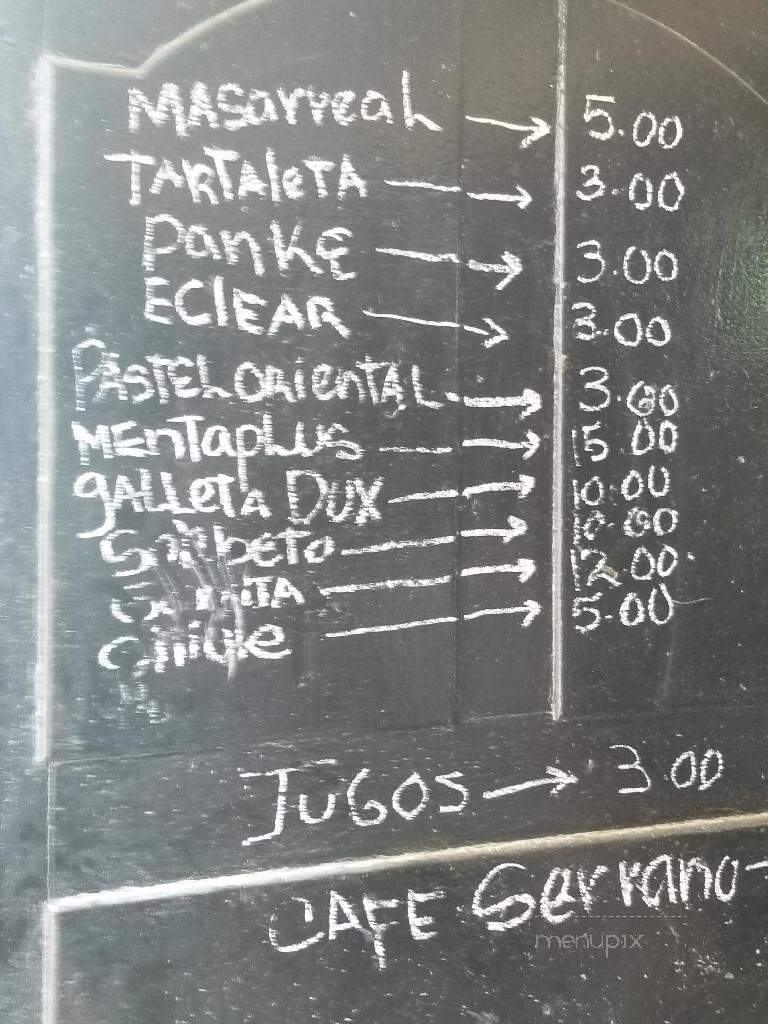 MASarreal → 5.00
TARTAleTA → 3.00
PanKE → 3.00
EClEAR → 3.00
PASTEL ORIENTAL → 3.00
MEnTaplus → 15.00
gALLeTA DUX → 10.00
Sorbeto → 10.00
→ 12.00
→ 5.00
JUGOS → 3.00
CAFE Serrano
menupix